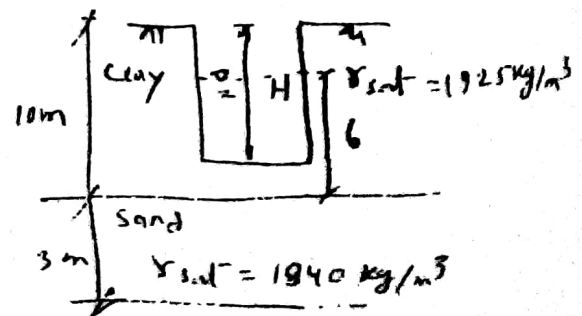 Clay H γsat = 1925 kg/m³
10m 6
Sand
3 m γsat = 1840 kg/m³